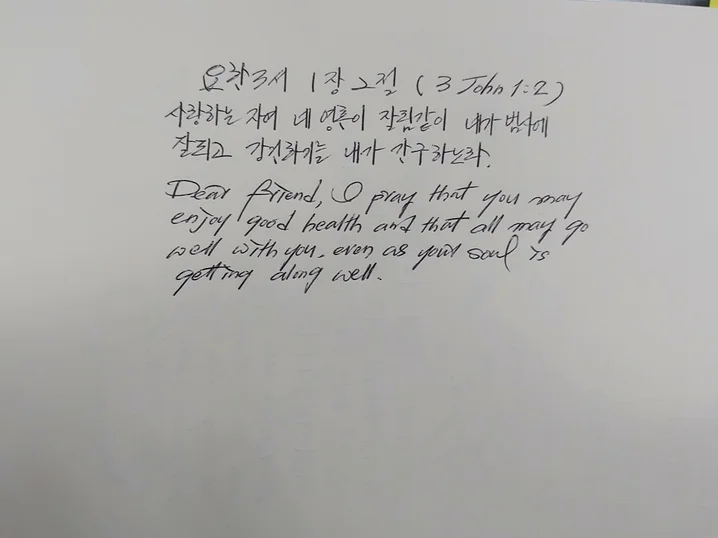 요한3서 1장 2절 (3 John 1:2)
사랑하는 자여 네 영혼이 잘됨같이 네가 범사에
잘되고 강건하기를 내가 간구하노라.
Dear friend, I pray that you may
enjoy good health and that all may go
well with you, even as your soul is
getting along well.